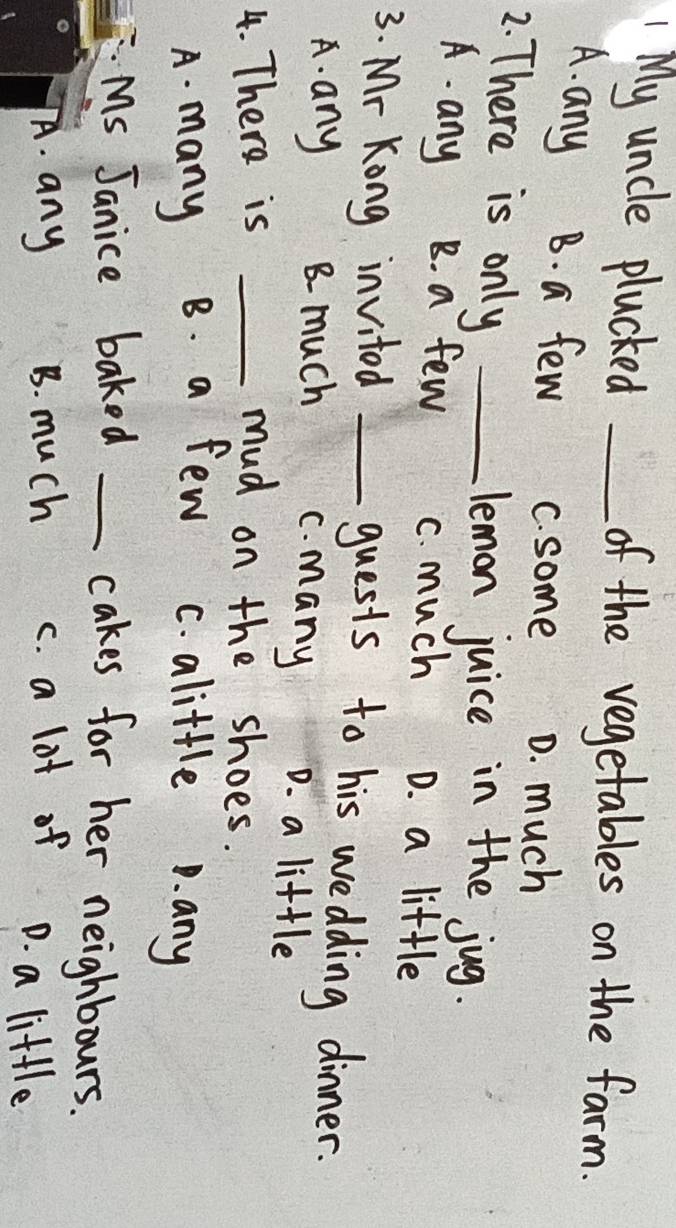 1 My uncle plucked ____ of the vegetables on the farm.
A. any B. a few C. some D. much
2. There is only ____ lemon juice in the jug.
A. any B. a few C. much D. a little
3. Mr Kong invited ____ guests to his wedding dinner.
A. any B. much C. many D. a little
4. There is ____ mud on the shoes.
A. many B. a few C. alittle D. any
Ms Janice baked ____ cakes for her neighbours.
A. any B. much C. a lot of D. a little